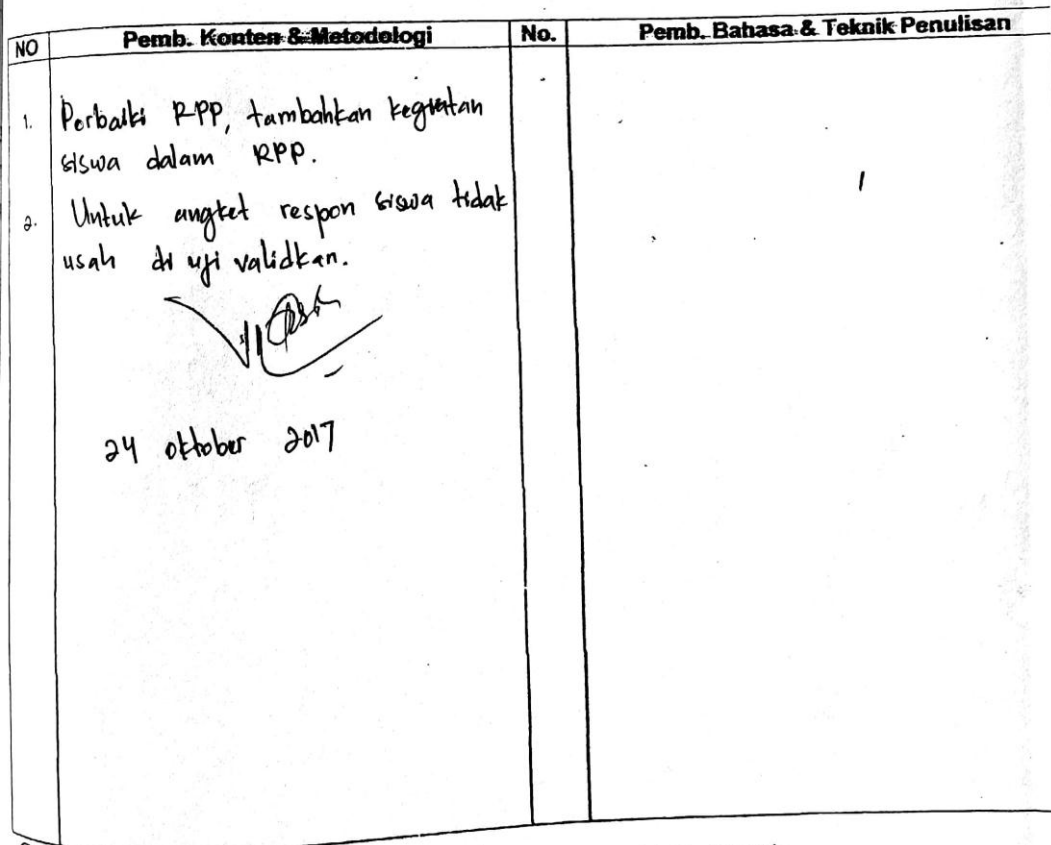 NO Pemb. Konten & Metodologi No. Pemb. Bahasa & Teknik Penulisan
1. Perbaiki RPP, tambahkan kegiatan
siswa dalam RPP.
2. Untuk angket respon siswa tidak
usah di uji validkan.
24 oktober 2017